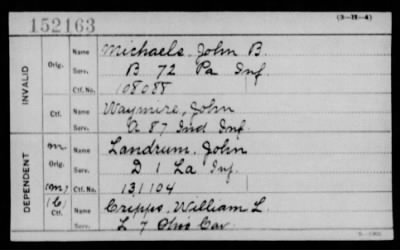 152163
(3-H-4)
INVALID
Orig. Name Michaels, John B.
Serv. B 72 Pa Inf.
Ctf. No. 108088
Ctf. Name Waymire, John
Serv. A 87 Ind Inf.
DEPENDENT
m Orig. Name Landrum, John
Serv. D 1 La Inf.
Ctf. No. 131104
Ctf. Name Cripps, William L.
Serv. L 7 Ohio Cav.